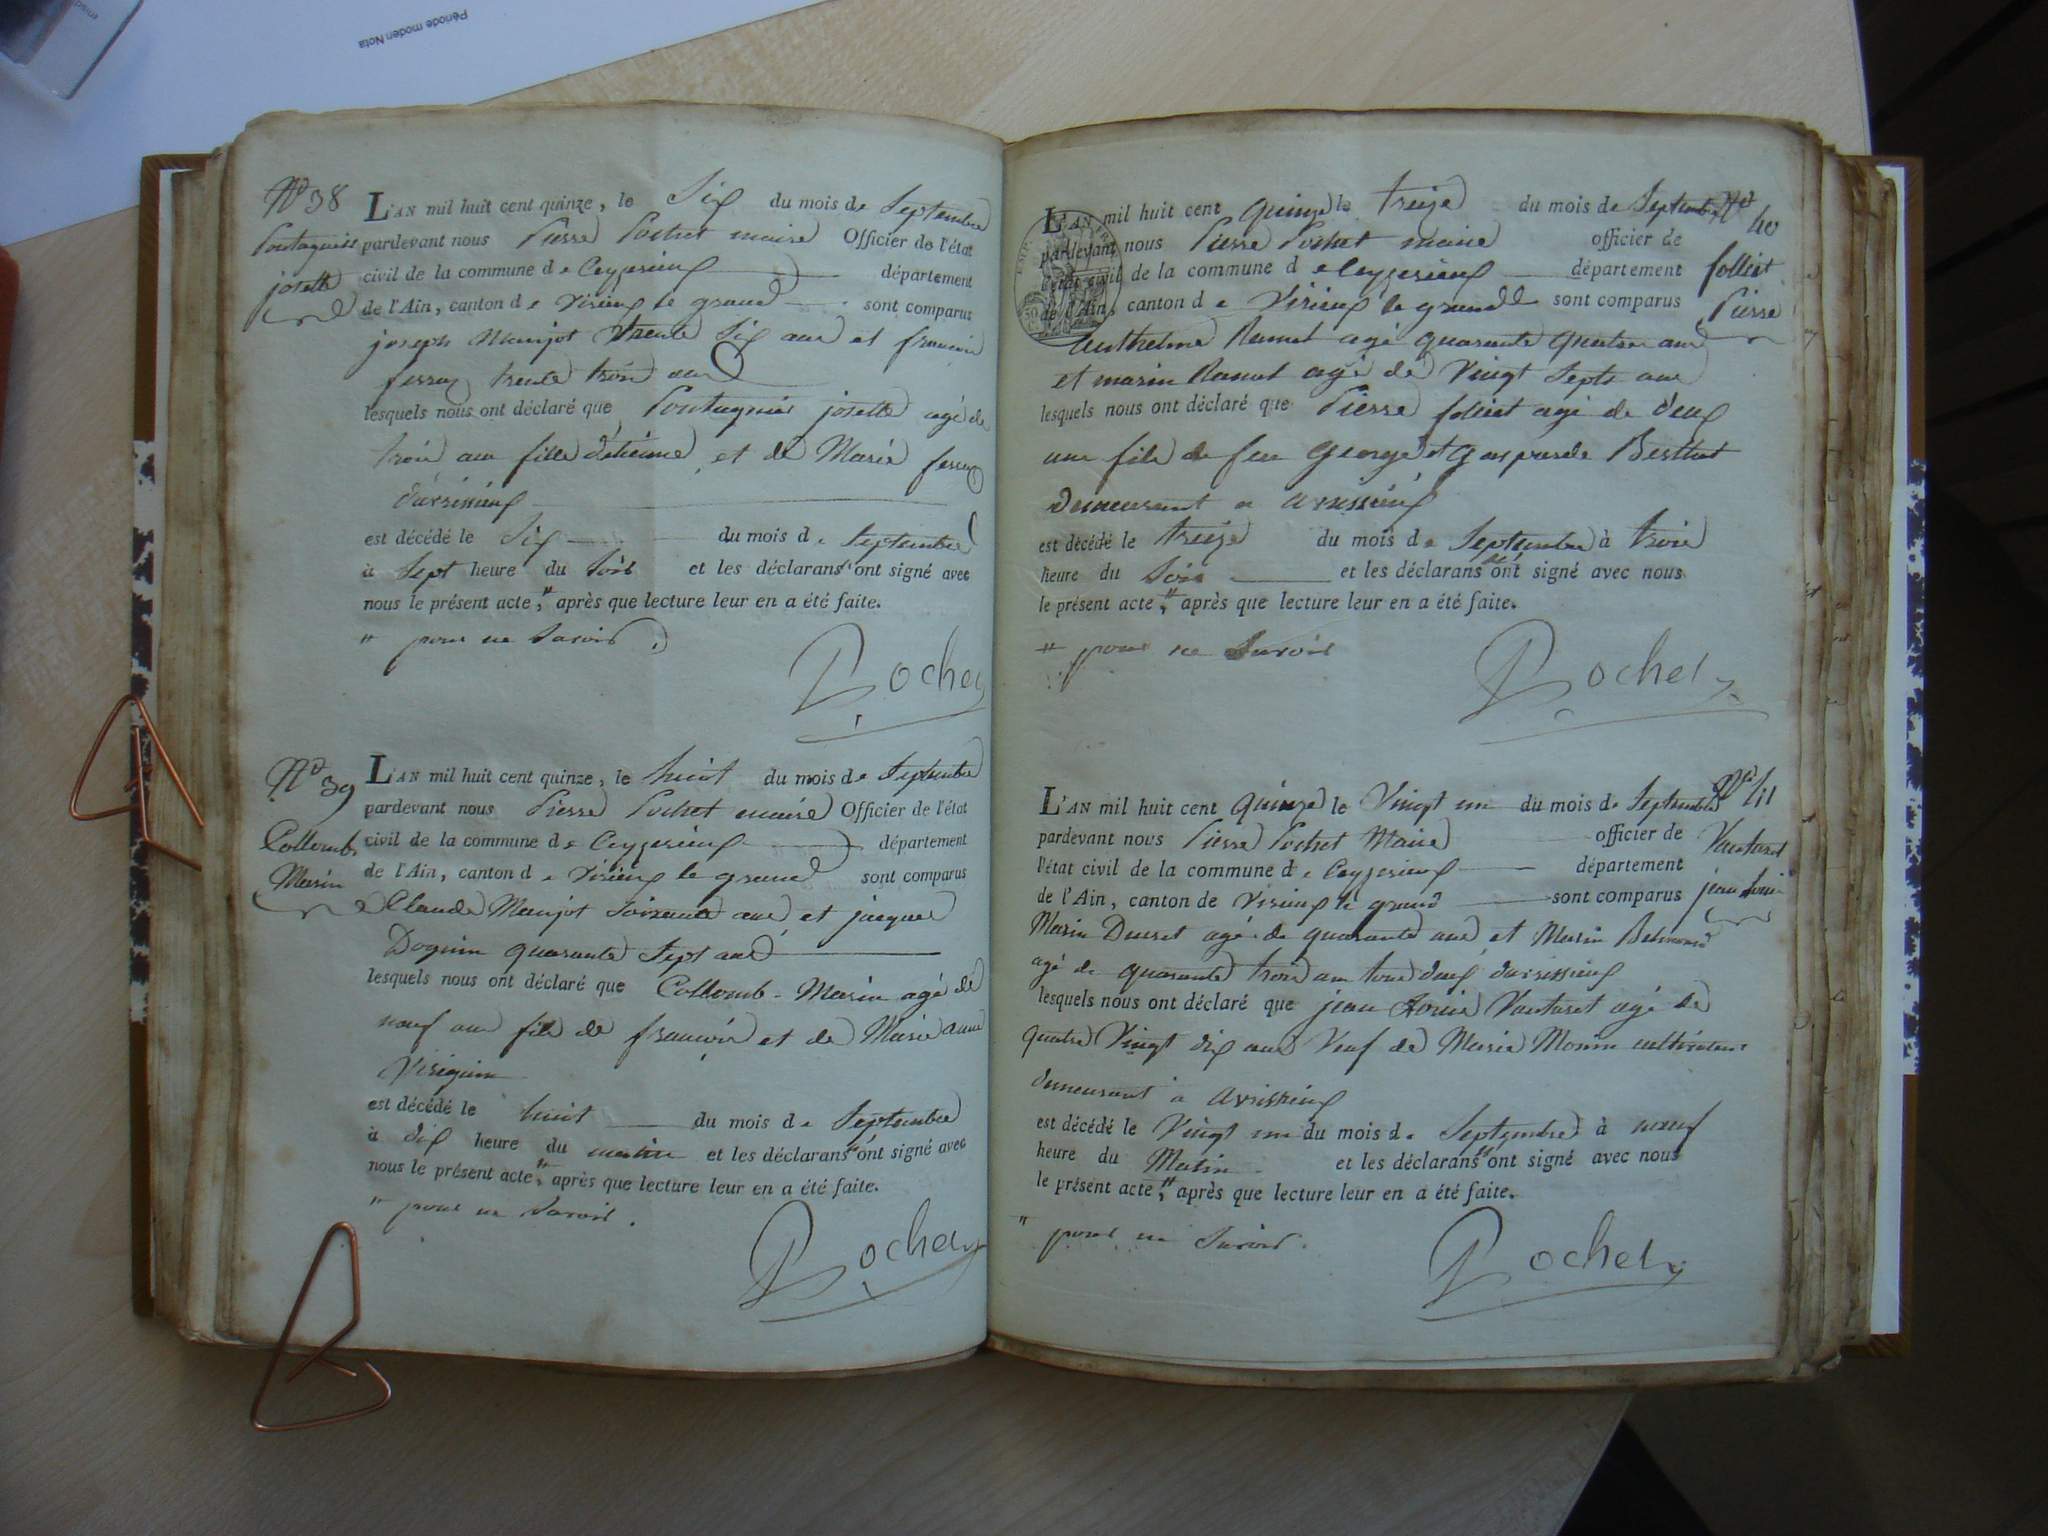 Période moden Nota
N° 38
Pontagnier
josette
L'AN mil huit cent quinze, le Six du mois de Septembre
pardevant nous Pierre Pochet maire Officier de l'état
civil de la commune de Ceyzerieux département
de l'Ain, canton de Virieux le grand sont comparus
joseph Manjot trente Six ans et francois
ferraz trente trois ans
lesquels nous ont déclaré que Pontagnier josette agé de
trois ans fille d'etienne et de Marie
d'avrissieux
est décédé le Six du mois de Septembre
à Sept heure du Soir et les déclarans ont signé avec
nous le présent acte, après que lecture leur en a été faite.
" pour ne Savoir
Pochet
N° 39
Collomb
Marin
L'AN mil huit cent quinze, le huit du mois de Septembre
pardevant nous Pierre Pochet maire Officier de l'état
civil de la commune de Ceyzerieux département
de l'Ain, canton de Virieux le grand sont comparus
Claude Manjot Soixante ans et jacques
Doguin quarante Sept ans
lesquels nous ont déclaré que Collomb Marin agé de
neuf ans fils de francois et de Marie anne
Viriguin
est décédé le huit du mois de Septembre
à dix heure du matin et les déclarans ont signé avec
nous le présent acte, après que lecture leur en a été faite.
" pour ne Savoir.
Pochet
N° 40
folliet
Pierre
L'AN mil huit cent quinze le treize du mois de Septembre
pardevant nous Pierre Pochet maire officier de
l'état civil de la commune de Ceyzerieux département
de l'Ain, canton de Virieux le grand sont comparus
Anthelme Ramel agé quarante quatre ans
et marin Ramel agé de Vingt Septs ans
lesquels nous ont déclaré que Pierre folliet agé de deux
ans fils de feu George et gasparde Berthet
demeurant a avrissieux
est décédé le treize du mois de Septembre à trois
heure du Soir et les déclarans ont signé avec nous
le présent acte, après que lecture leur en a été faite.
" pour ne Savoir
Pochet
N° 41
Vautaret
jean Louis
L'AN mil huit cent quinze le Vingt un du mois de Septembre
pardevant nous Pierre Pochet Maire officier de
l'état civil de la commune de Ceyzerieux département
de l'Ain, canton de Virieux le grand sont comparus
Marin Ducret agé de quarante ans et Marin
agé de quarante trois ans tous deux d'avrissieux
lesquels nous ont déclaré que jean Louis Vautaret agé de
quatre Vingt dix ans Veuf de Marie Monin cultivateur
demeurant à avrissieux
est décédé le Vingt un du mois de Septembre à neuf
heure du Matin et les déclarans ont signé avec nous
le présent acte, après que lecture leur en a été faite.
" pour ne Savoir.
Pochet